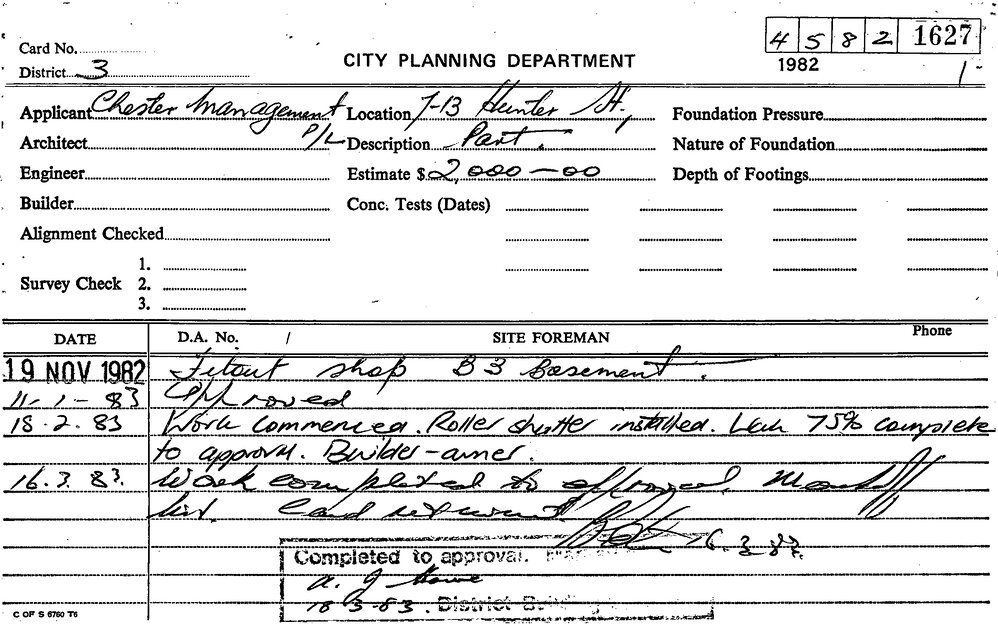 4 5 8 2 1627
Card No.
CITY PLANNING DEPARTMENT
1982
1
District 3
Applicant Chester Management P/L
Location 7-13 Hunter St.,
Foundation Pressure
Architect
Description Part.
Nature of Foundation
Engineer
Estimate $ 2,000-00
Depth of Footings
Builder
Conc. Tests (Dates)
Alignment Checked
1.
Survey Check 2.
3.
DATE D.A. No. / SITE FOREMAN Phone
19 NOV 1982 Fitout shop B3 Basement.
11-1-83 Approved
18.2.83 Work commenced. Roller shutter installed. 75% complete
to approval. Builder-owner.
16.3.83. Work completed to approval.
list. Card
16.3.83.
Completed to approval.
A. J. Howe
18-3-83. District
C OF S 6760 T6